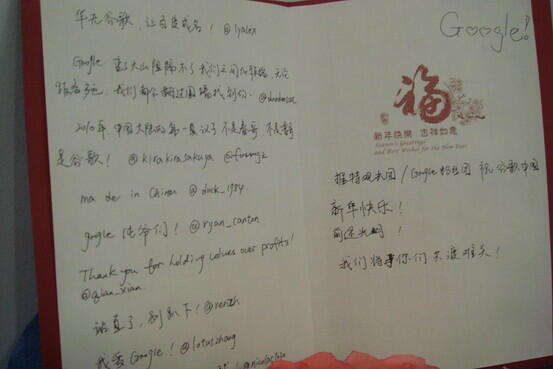 华无谷歌，让百度成名！ @lyalex
Google 重了大山阻隔不了我们之间的联络，无论
我们都会翻过围墙找到你。
2010年 中国大陆的第一袭汉子 不是春哥 不是
是谷歌！ @kirakirasakuya
made in China @duck_1984
google 纯爷们！ @ryan_canton
Thank you for holding values over profits!
@qian_xian
站直了，别趴下！ @renzh
我爱 Google！ @lotuszhang
Google!
福
新年快樂 吉祥如意
Season's Greetings
and Best Wishes for the New Year
推特观光团 / Google粉丝团 祝 谷歌中国
新年快乐！
前途光明！
我们将与你们共渡难关！